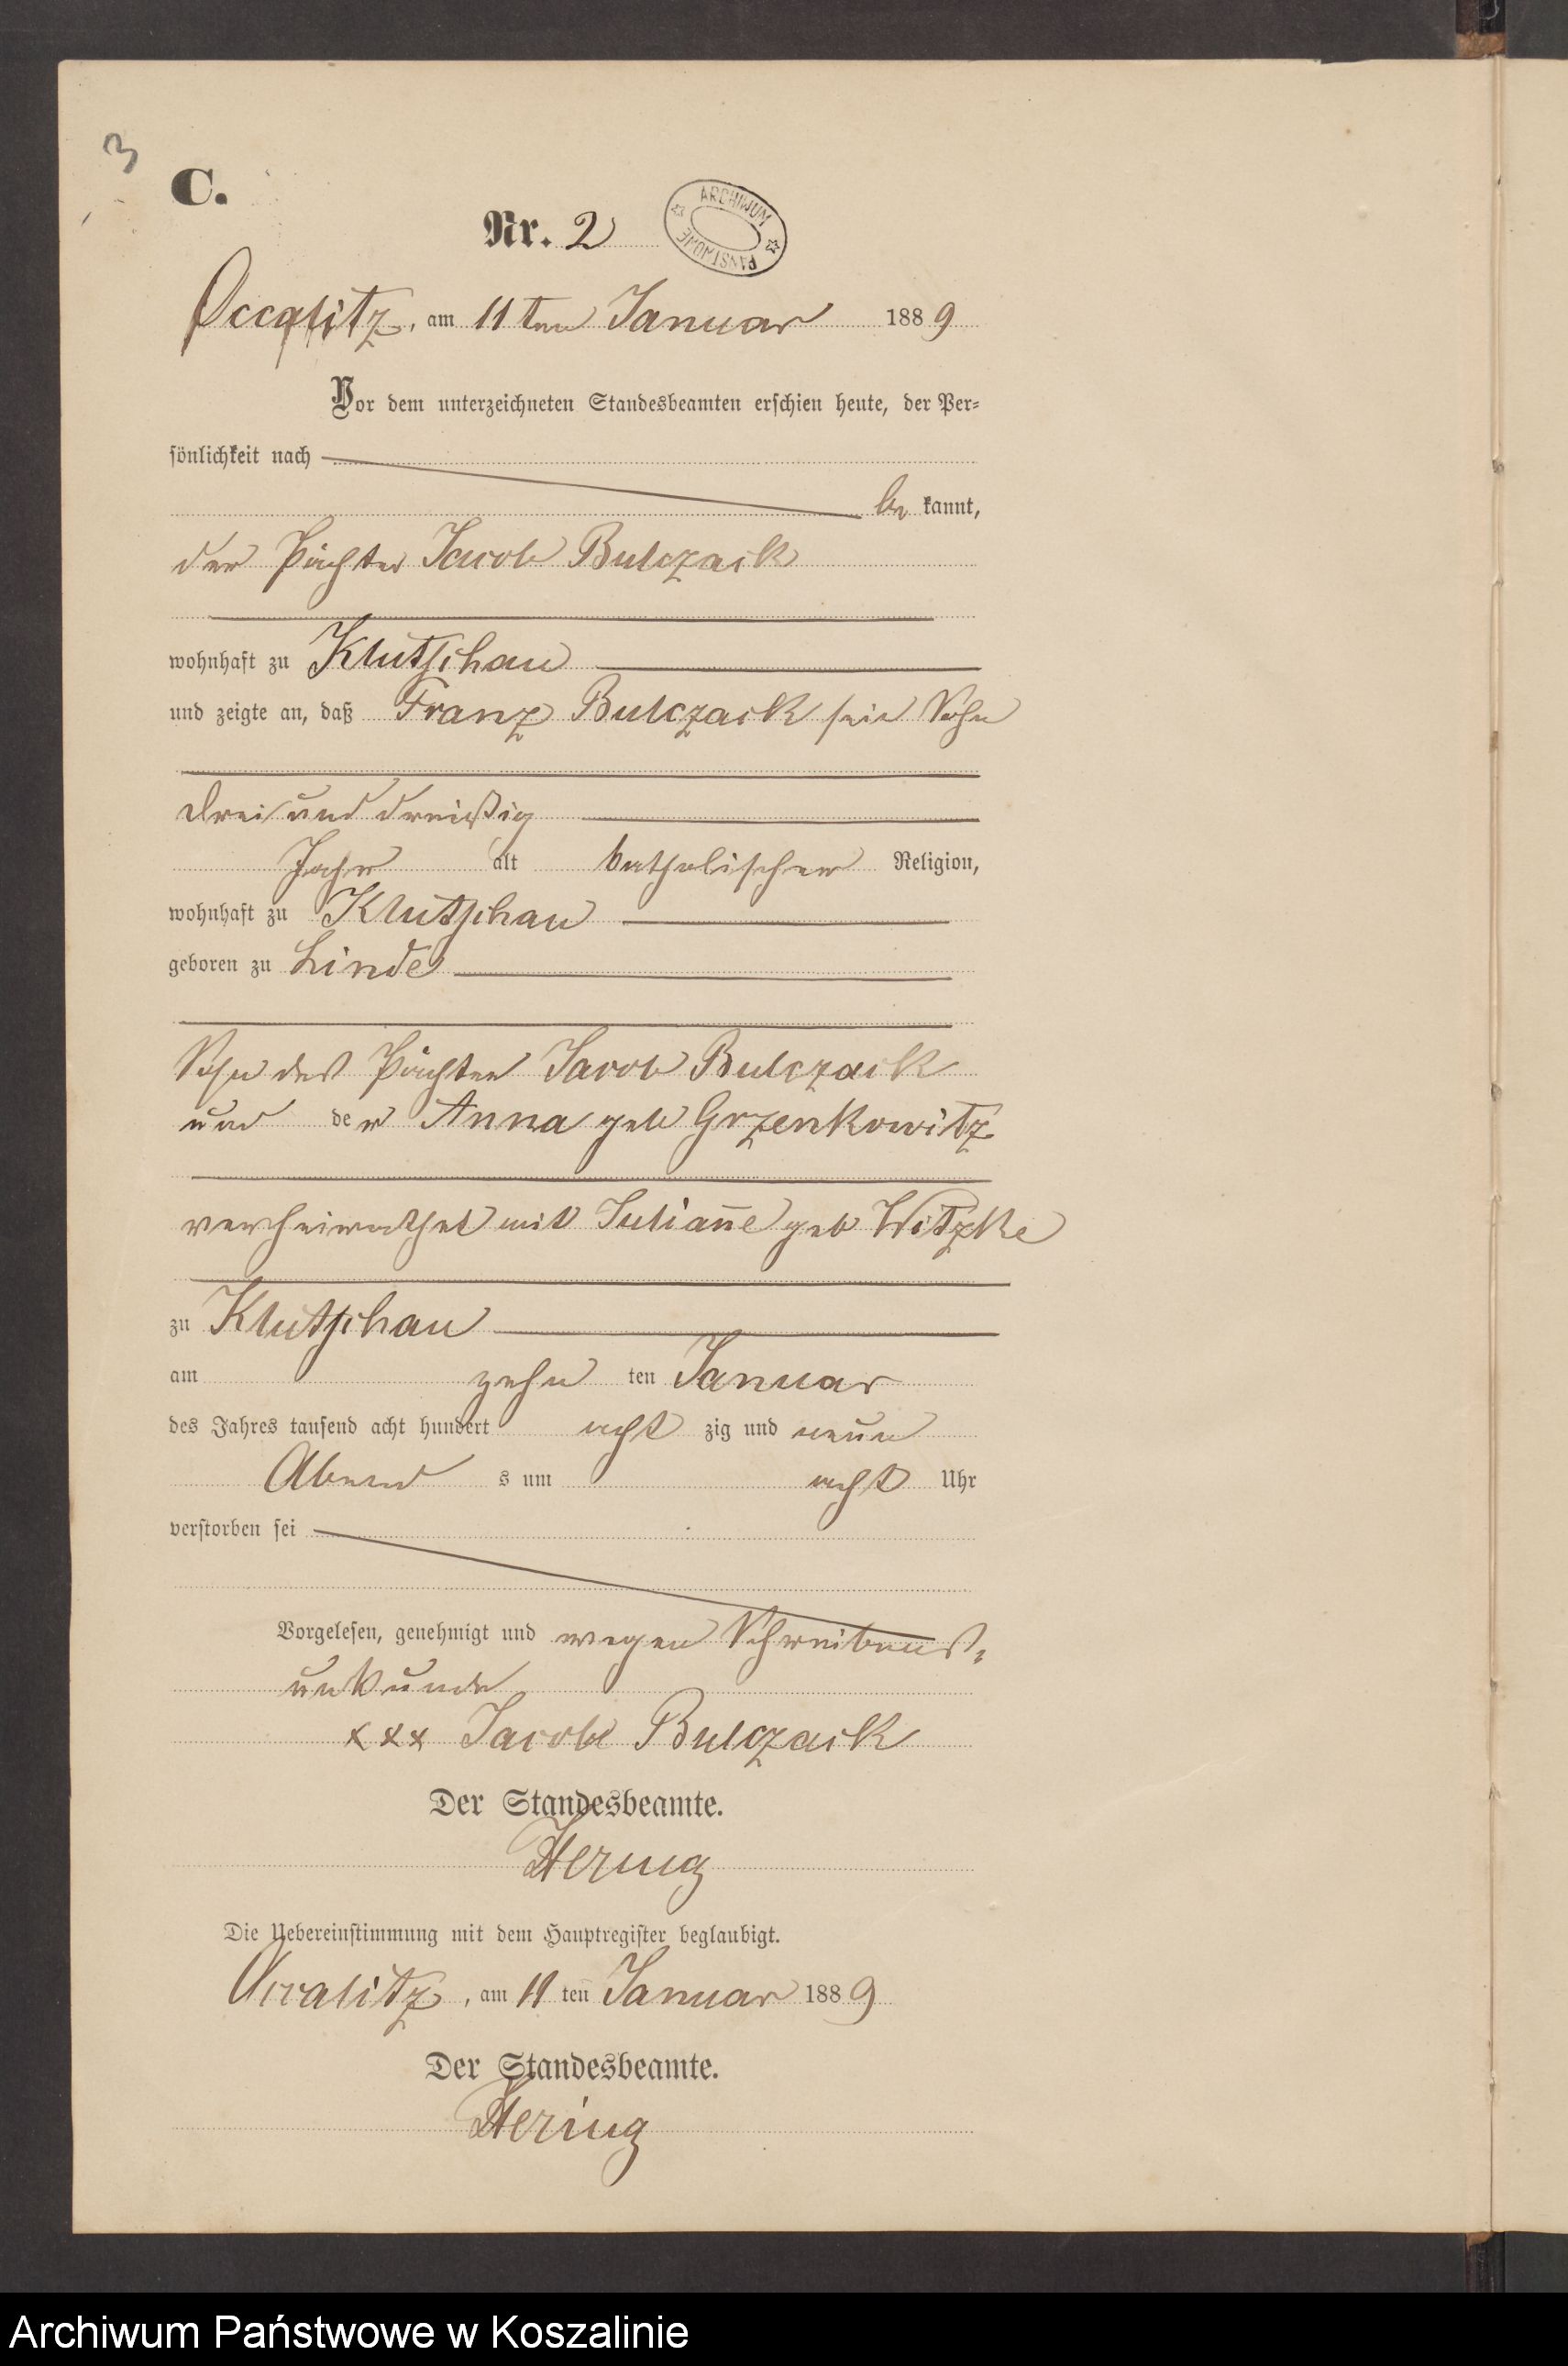 3
C.
Nr. 2
ARCHIWUM PAŃSTWOWE
Occalitz, am 11ten Januar 1889
Vor dem unterzeichneten Standesbeamten erschien heute, der Per-
sönlichkeit nach
be kannt,
der Pächter Jacob Bulczack
wohnhaft zu Klutschau
und zeigte an, daß Franz Bulczack sein Sohn
drei und dreißig
Jahr alt katholischer Religion,
wohnhaft zu Klutschau
geboren zu Linde
Sohn des Pächter Jacob Bulczack
und der Anna geb Grzenkowitz
verheirathet mit Julian̄e geb Witzke
zu Klutschau
am zehn ten Januar
des Jahres tausend acht hundert acht zig und neun
Abend s um acht Uhr
verstorben sei
Vorgelesen, genehmigt und wegen Schreibens-
unkunde
xxx Jacob Bulczack
Der Standesbeamte.
Hering
Die Uebereinstimmung mit dem Hauptregister beglaubigt.
Occalitz, am 11 ten Januar 1889
Der Standesbeamte.
Hering
Archiwum Państwowe w Koszalinie